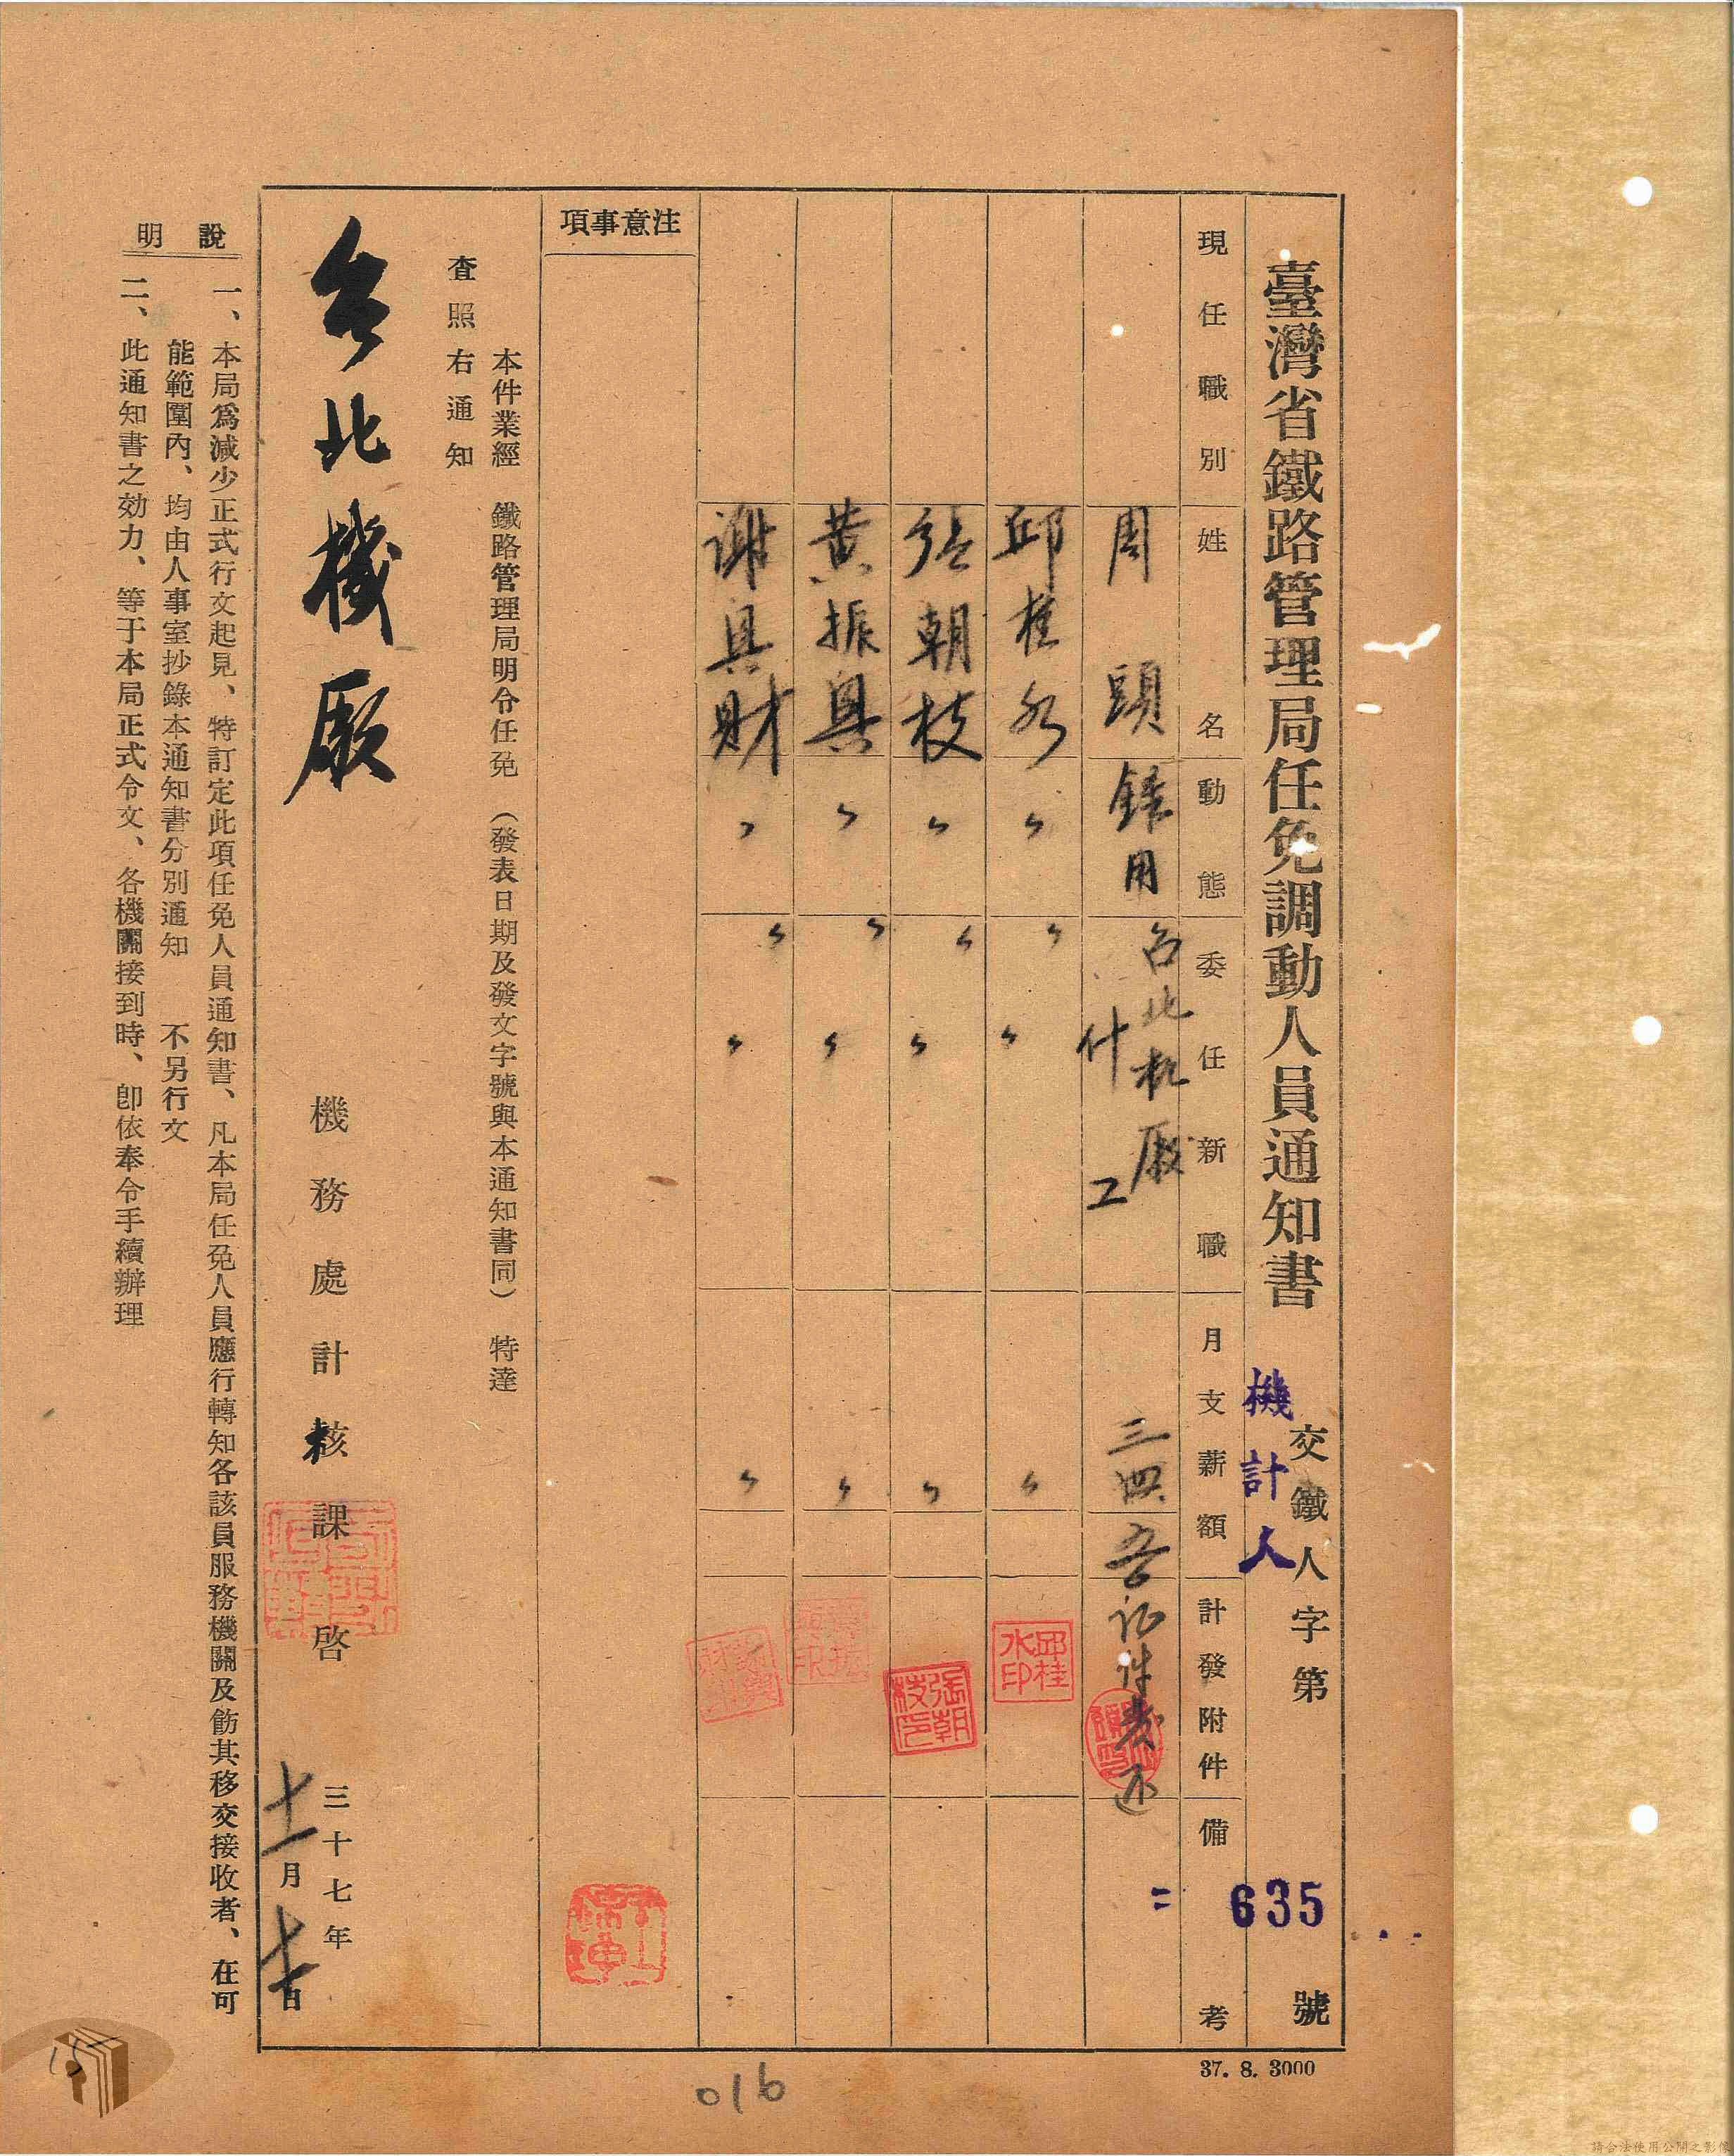 臺灣省鐵路管理局任免調動人員通知書
交鐵人字第 635 號
機計人
現任職別 姓名 動態 委任新職 月支薪額 計發附件 備考
周頭 錄用 台北机厰 什工 三四 各证件發还
邱桂水 〃 〃 〃 〃
邱桂水印
張朝枝 〃 〃 〃 〃
張朝枝印
黃振興 〃 〃 〃 〃
謝興財 〃 〃 〃 〃
注意事項
本件業經 鐵路管理局明令任免 (發表日期及發文字號與本通知書同) 特達
查照右通知
台北機厰
機務處計核課 啓
三十七年
十一月 日
說明
一、本局爲減少正式行文起見、特訂定此項任免人員通知書、凡本局任免人員應行轉知各該員服務機關及飭其移交接收者、在可
能範圍內、均由人事室抄錄本通知書分別通知 不另行文
二、此通知書之効力、等于本局正式令文、各機關接到時、卽依奉令手續辦理
37. 8. 3000
016
15
請合法使用公開之影像